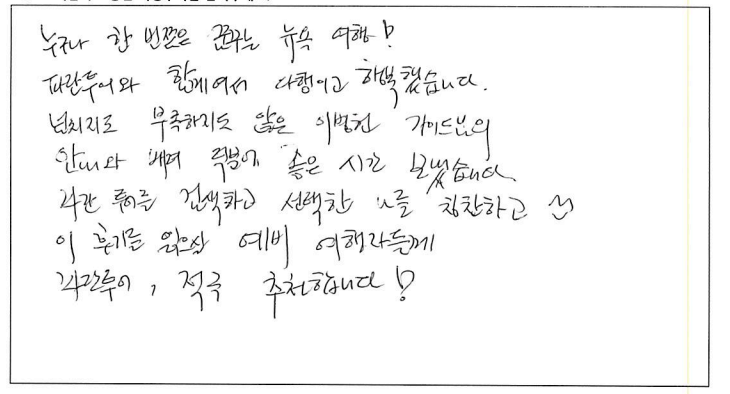 누구나 한 번쯤은 꿈꾸는 뉴욕 여행!
파란투어와 함께여서 다행이고 행복했습니다.
넘치지도 부족하지도 않은 이병헌 가이드님의
안내와 배려 덕분에 좋은 시간 보냈습니다.
파란 투어를 검색하고 선택한 나를 칭찬하고
이 후기를 읽으실 예비 여행자들께
파란투어, 적극 추천합니다!